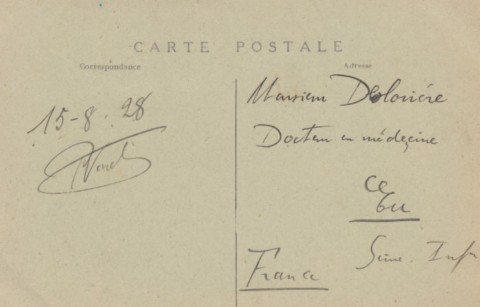 CARTE POSTALE
Correspondance
Adresse
15-8. 28
Monsieur Delovière
Docteur en médecine
Eu
Seine. Infre
France